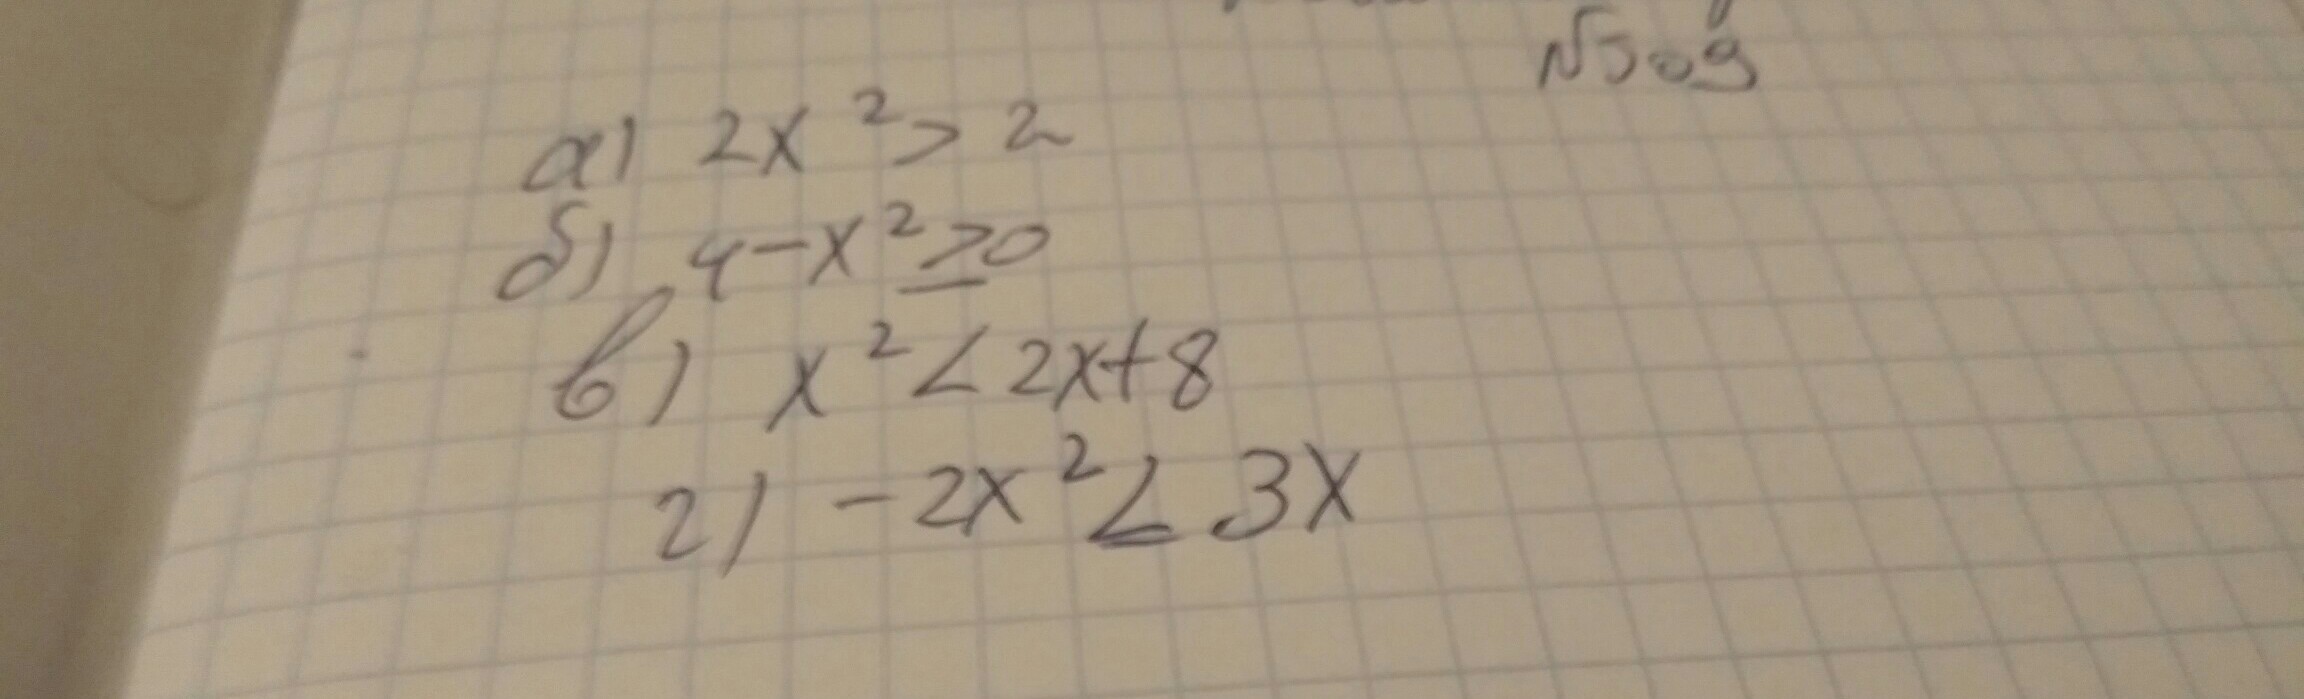 №309
а) 2x² > 2
б) 4-x² ≥ 0
в) x² < 2x+8
г) -2x² ≤ 3x